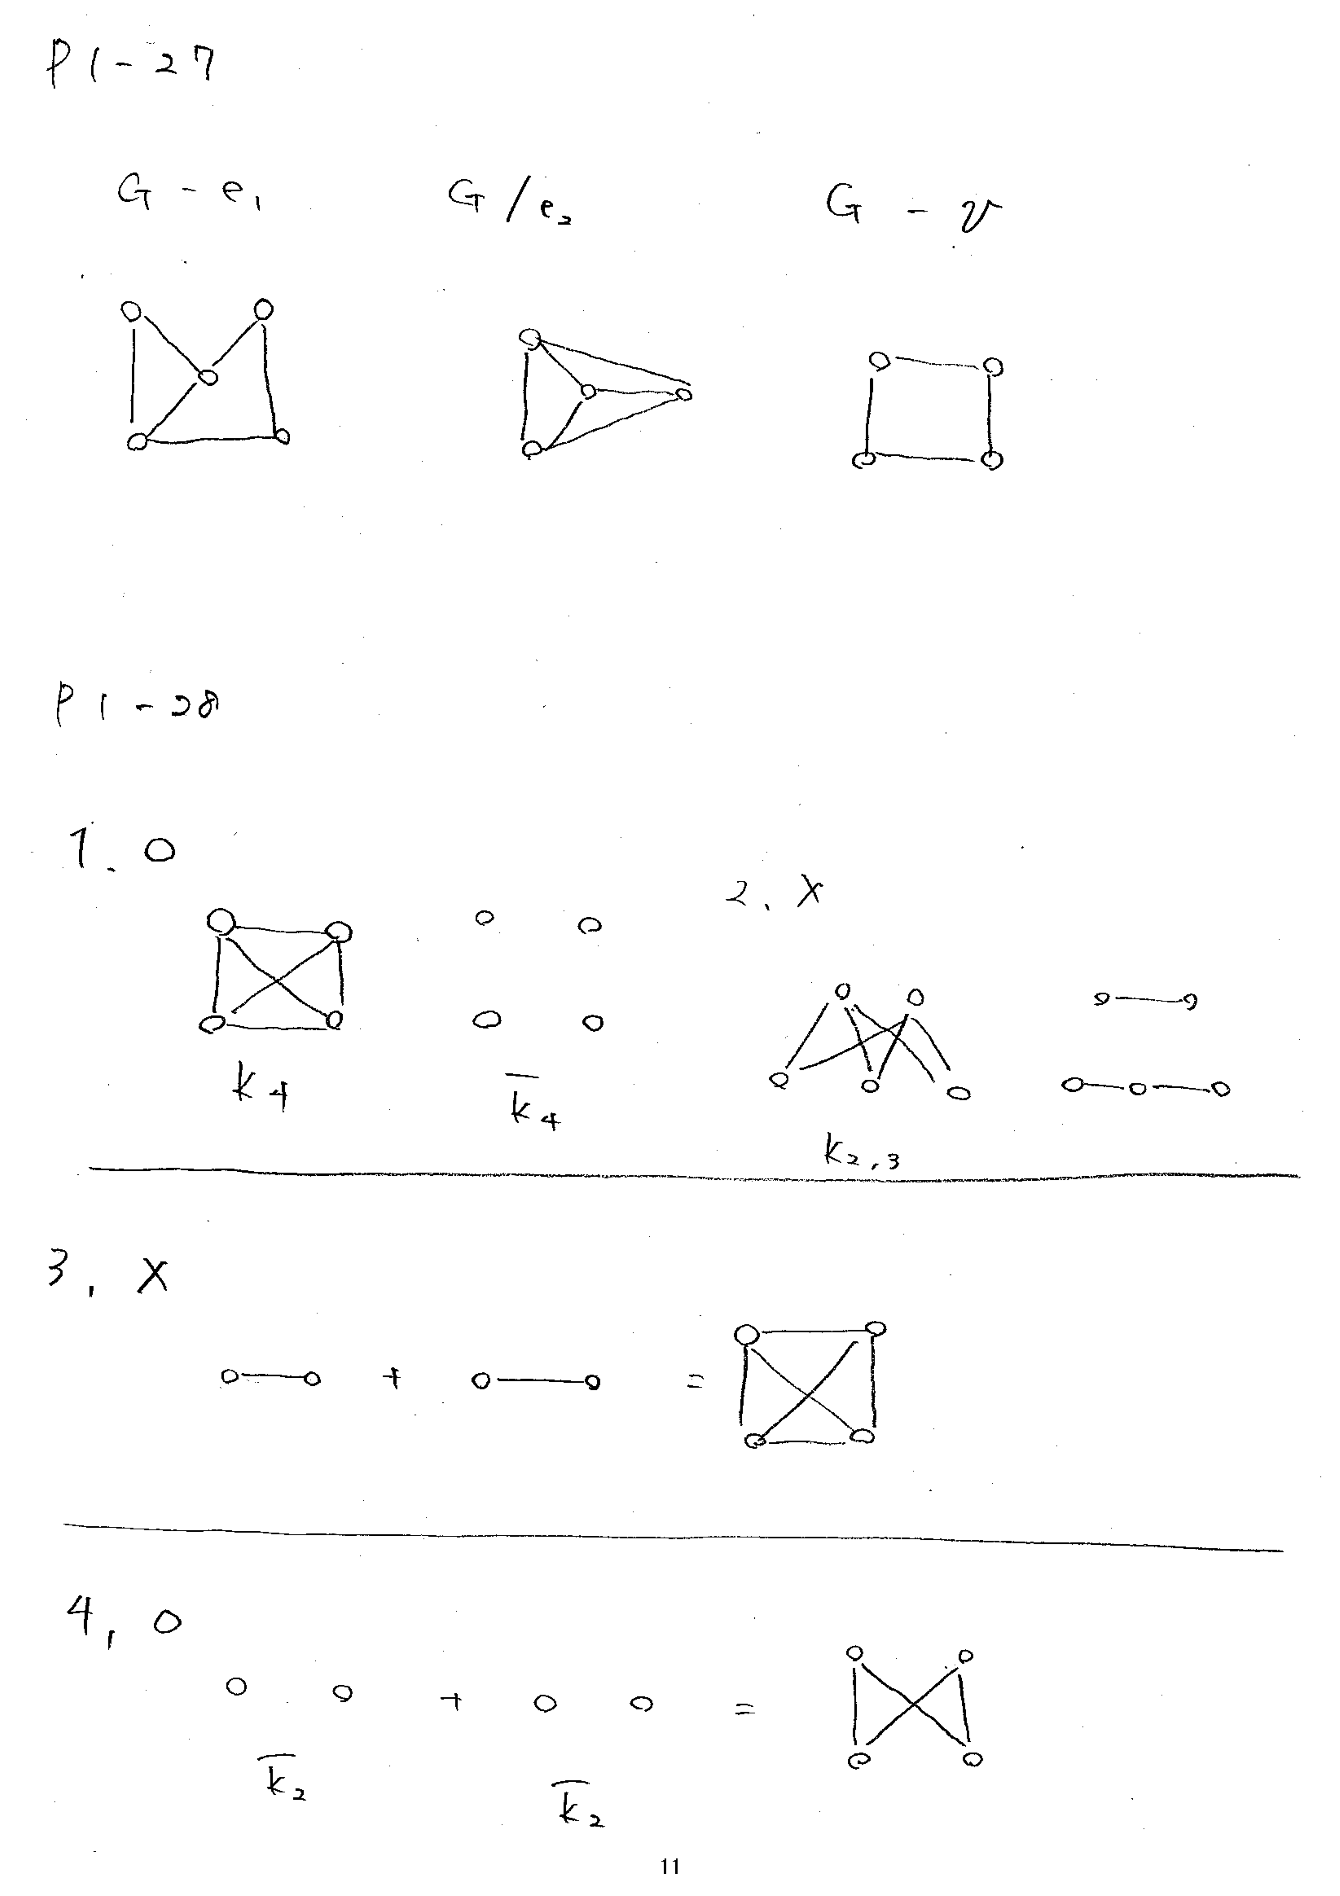 P1-27
G - e₁ G/e₂ G - v
P1-28
1. O
2, X
K₄ K̅₄
K₂,₃
3, X
+ =
4, O
+ =
K̅₂ K̅₂
11